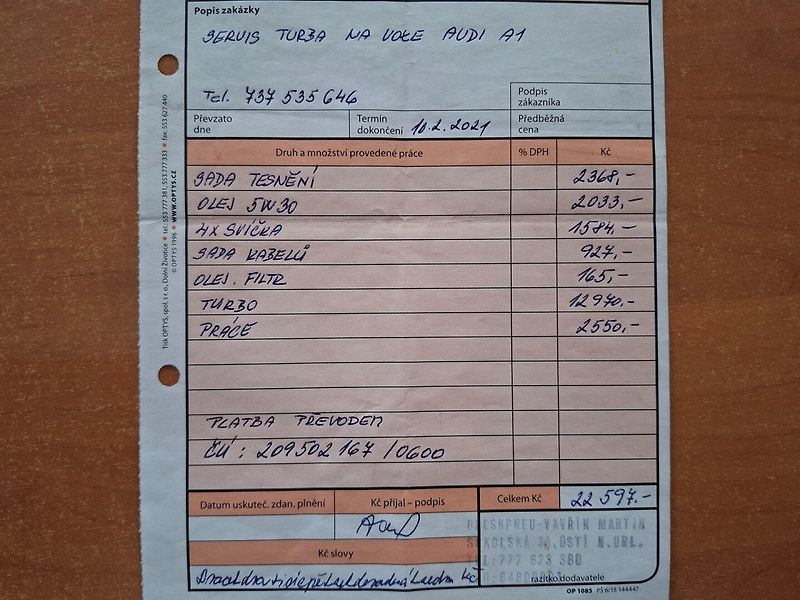 Popis zakázky
SERVIS TURBA NA VOZE AUDI A1
Tel. 737 535 646
Podpis zákazníka
Převzato dne
Termín dokončení 10.2.2021
Předběžná cena
Druh a množství provedené práce % DPH Kč
SADA TESNĚNÍ 2368,-
OLEJ 5W30 2033,-
4x SVÍČKA 1584,-
SADA KABELŮ 927,-
OLEJ. FILTR 165,-
TURBO 12970.-
PRÁCE 2550,-
PLATBA PŘEVODEM
ČÚ: 209502167/0600
Datum uskuteč. zdan. plnění
Kč přijal – podpis
Celkem Kč 22 597.-
Kč slovy
PNEUSKPNEU-VAVŘÍN MARTIN
SOKOLSKÁ 38, ÚSTÍ N.ORL.
TEL:777 623 380
razítko dodavatele
OP 1085 PŠ 6/15 144447
Tisk OPTYS, spol. s r. o., Dolní Životice ● tel.: 553 777 381, 553 777 333 ● fax: 553 627 440
© OPTYS 1996 ● WWW.OPTYS.CZ